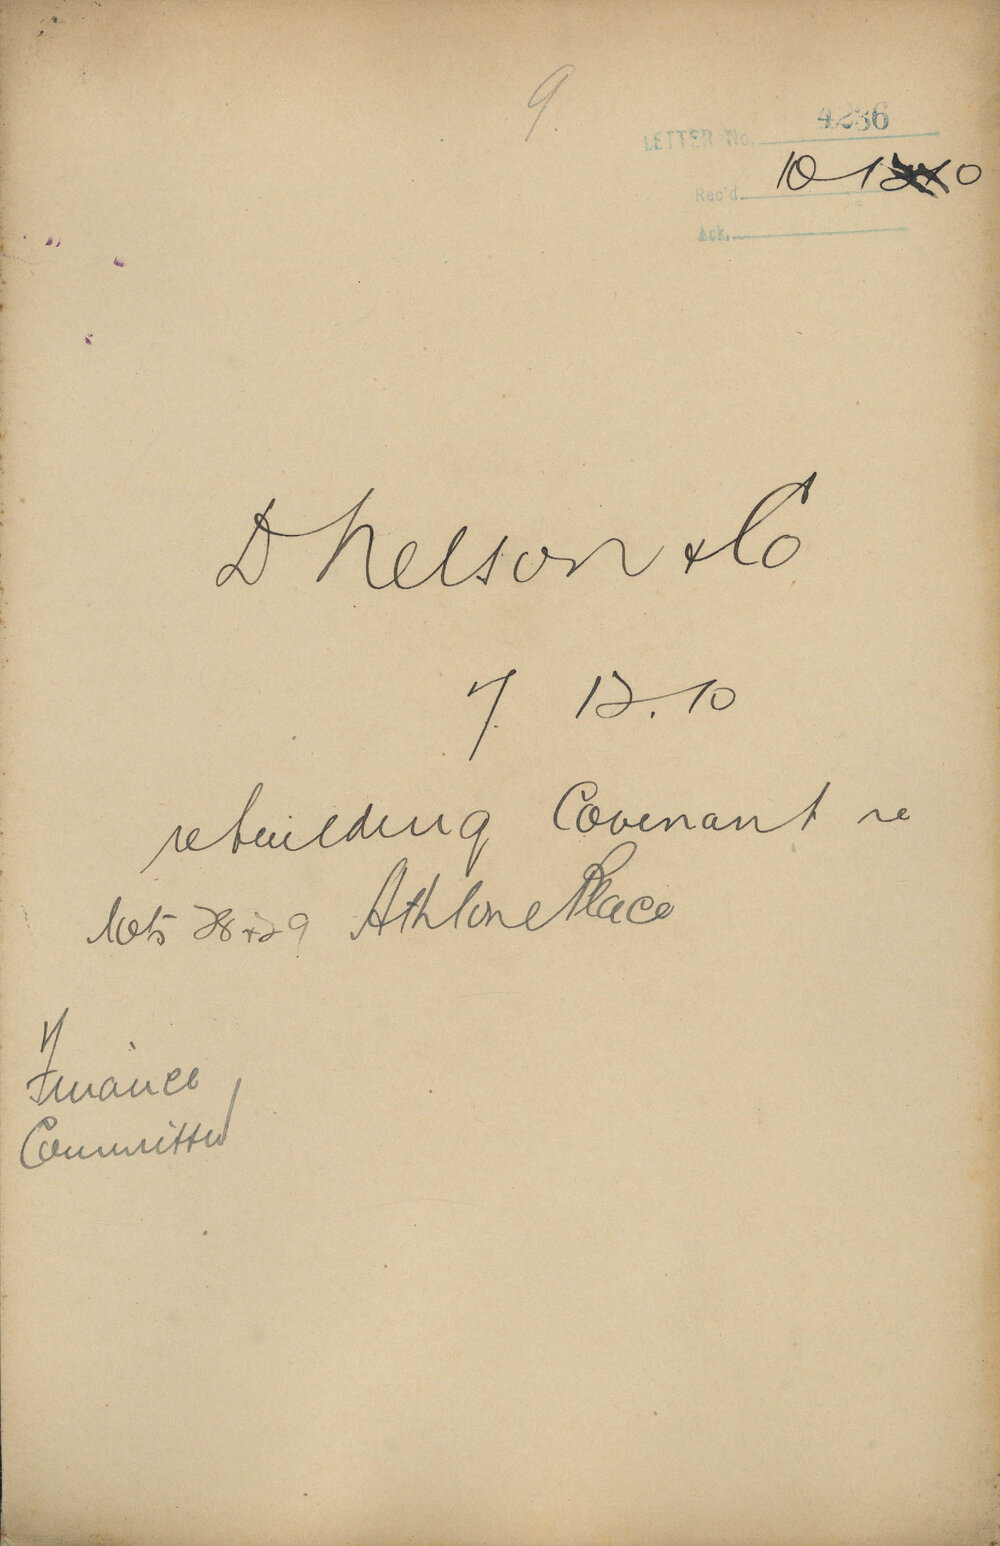 9.
LETTER No. 4236
Rec'd. 10 12 10
Ack.
D Nelson & Co
7. 12. 10
rebuilding Covenant re
lots 28 + 29 Athlone Place
Finance
Committee